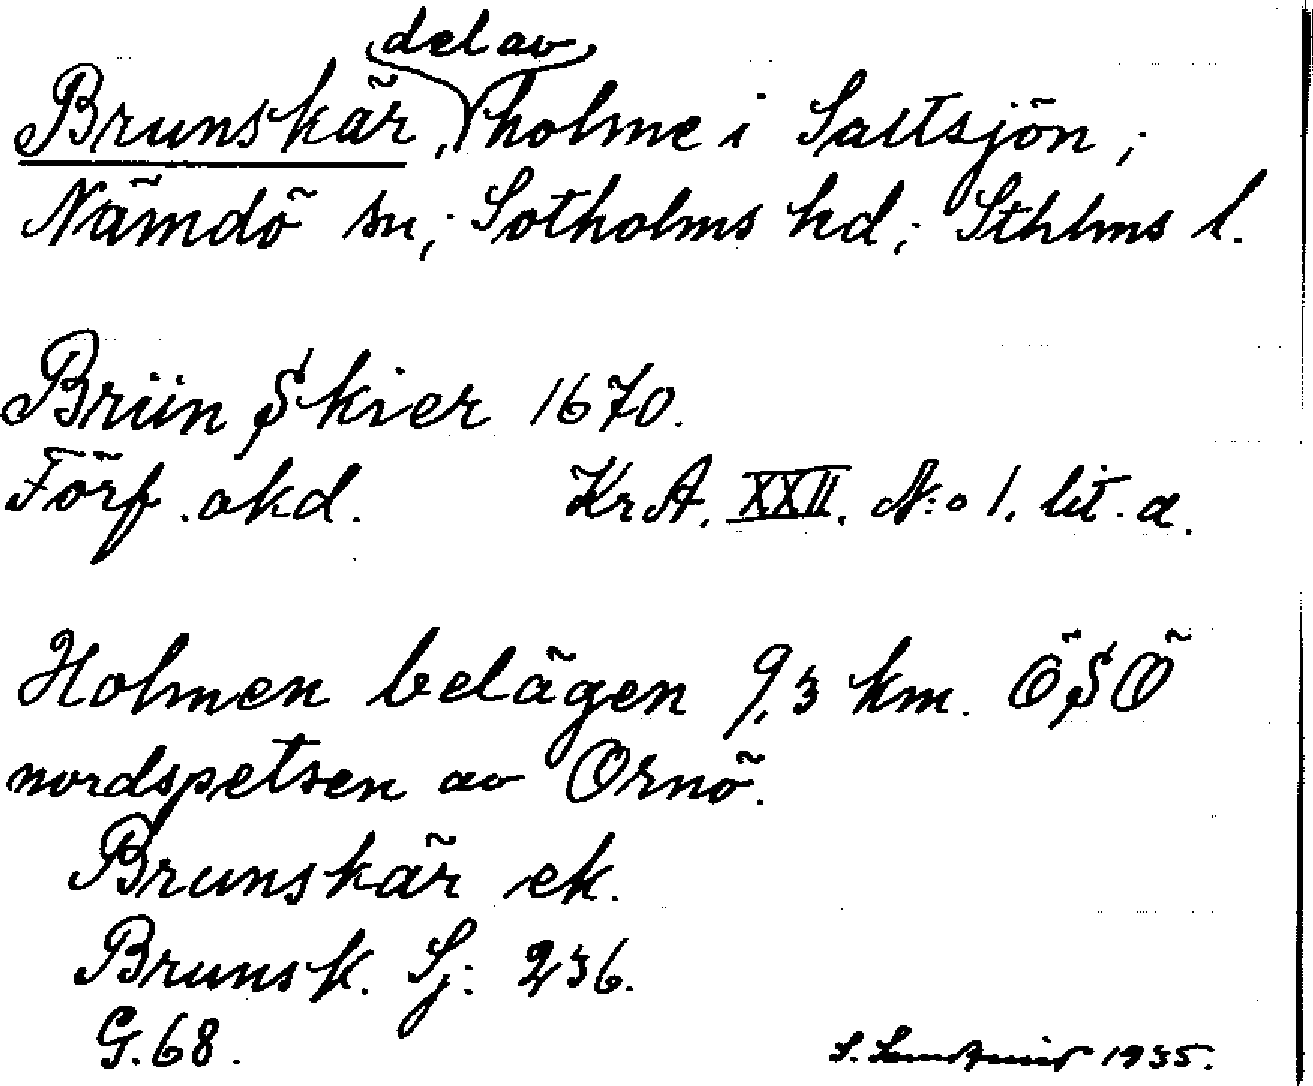 Brunskär, del av holme i Saltsjön;
Nämdö sn; Sotholms hd; Sthlms l.
Brün Skier 1670.
Förf. okd. KrA. XXII. N:o 1. lit. a.
Holmen belägen 9,3 km. ÖSÖ
nordspetsen av Ornö.
Brunskär ek.
Brunsk. Sj: 236.
G. 68.
S. 1935.